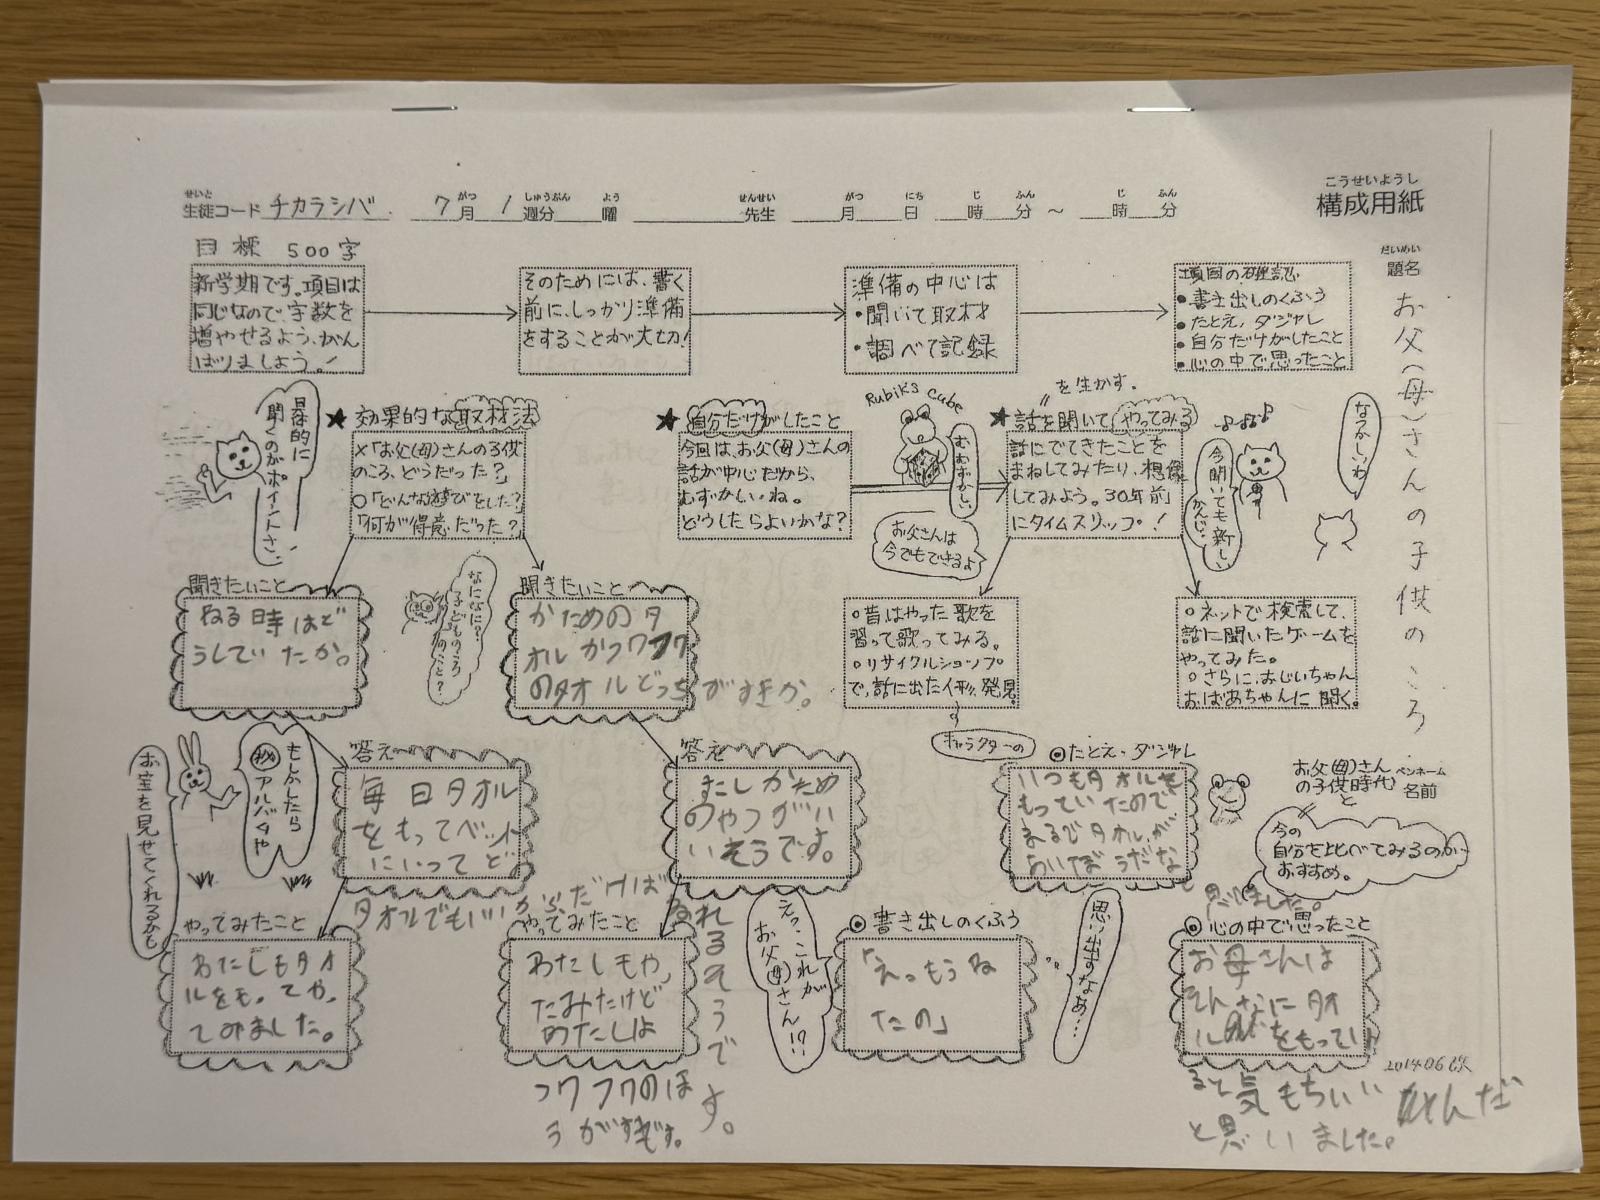 せいと
生徒コード チカラシバ 7月 1週分 曜 先生 月 日 時 分 ～ 時 分
がつ しゅうぶん よう せんせい がつ にち じ ふん じ ふん
こうせいようし
構成用紙
だいめい
題名
お父(母)さんの子供のころ
目標 500字
新学期です。項目は
同じなので、字数を
増やせるよう、がん
ばりましょう。!
そのためには、書く
前に、しっかり準備
をすることが大切!
準備の中心は
・聞いて取材
・調べて記録
項目の確認
・書き出しのくふう
・たとえ、ダジャレ
・自分だけがしたこと
・心の中で思ったこと
具体的に
聞くのがポイントさ、
★効果的な取材法
×「お父(母)さんの子供
のころ、どうだった?」
○「どんな遊びをした?」
「何が得意だった?」
★自分だけがしたこと
今回は、お父(母)さんの
話が中心だから、
むずかしいね。
どうしたらよいかな?
Rubik's Cube
むむずかしい
お父さんは
今でもできるよ
を生かす。
★話を聞いてやってみる
話にでてきたことを
まねしてみたり、想像
してみよう。30年前
にタイムスリップ!
今聞いても新しい
かんじ、
なつかしいわ
聞きたいこと
ねる時はど
うしていたか。
なになに?
子どものころ
のこと?
聞きたいこと
かためのタ
オルかフワフワ
のタオルどっちがすきか。
○昔はやった歌を
習って歌ってみる。
○リサイクルショップ
で、話に出た人形発見
キャラクターの
○ネットで検索して、
話に聞いたゲームを
やってみた。
○さらに、おじいちゃん
おばあちゃんに聞く。
もしかしたら
㊙アルバムや
お宝を見せてくれるかも
答え
毎日タオル
をもってベット
にいってど
タオルでもいいからだけばねれるそうです。
答え
すこしかため
のやつがい
いそうです。
◎たとえ・ダジャレ
いつもタオルを
もっていたので
まるでタオルが
あいぼうだな
と思いました。
お父(母)さん
の子供時代
と
ペンネーム
名前
今の
自分を比べてみるのが、
おすすめ。
やってみたこと
わたしもタオ
ルをもってや
ってみました。
やってみたこと
わたしもや
たみたけど
わたしは
フワフワのほ
うがすきです。
えっ、これが
お父(母)さん!?
◎書き出しのくふう
「えっもうね
たの」
思い出すなあ…
◎心の中で思ったこと
お母さんは
そんなにタオ
ルをもってい
ると気もちいいなんだ
と思いました。